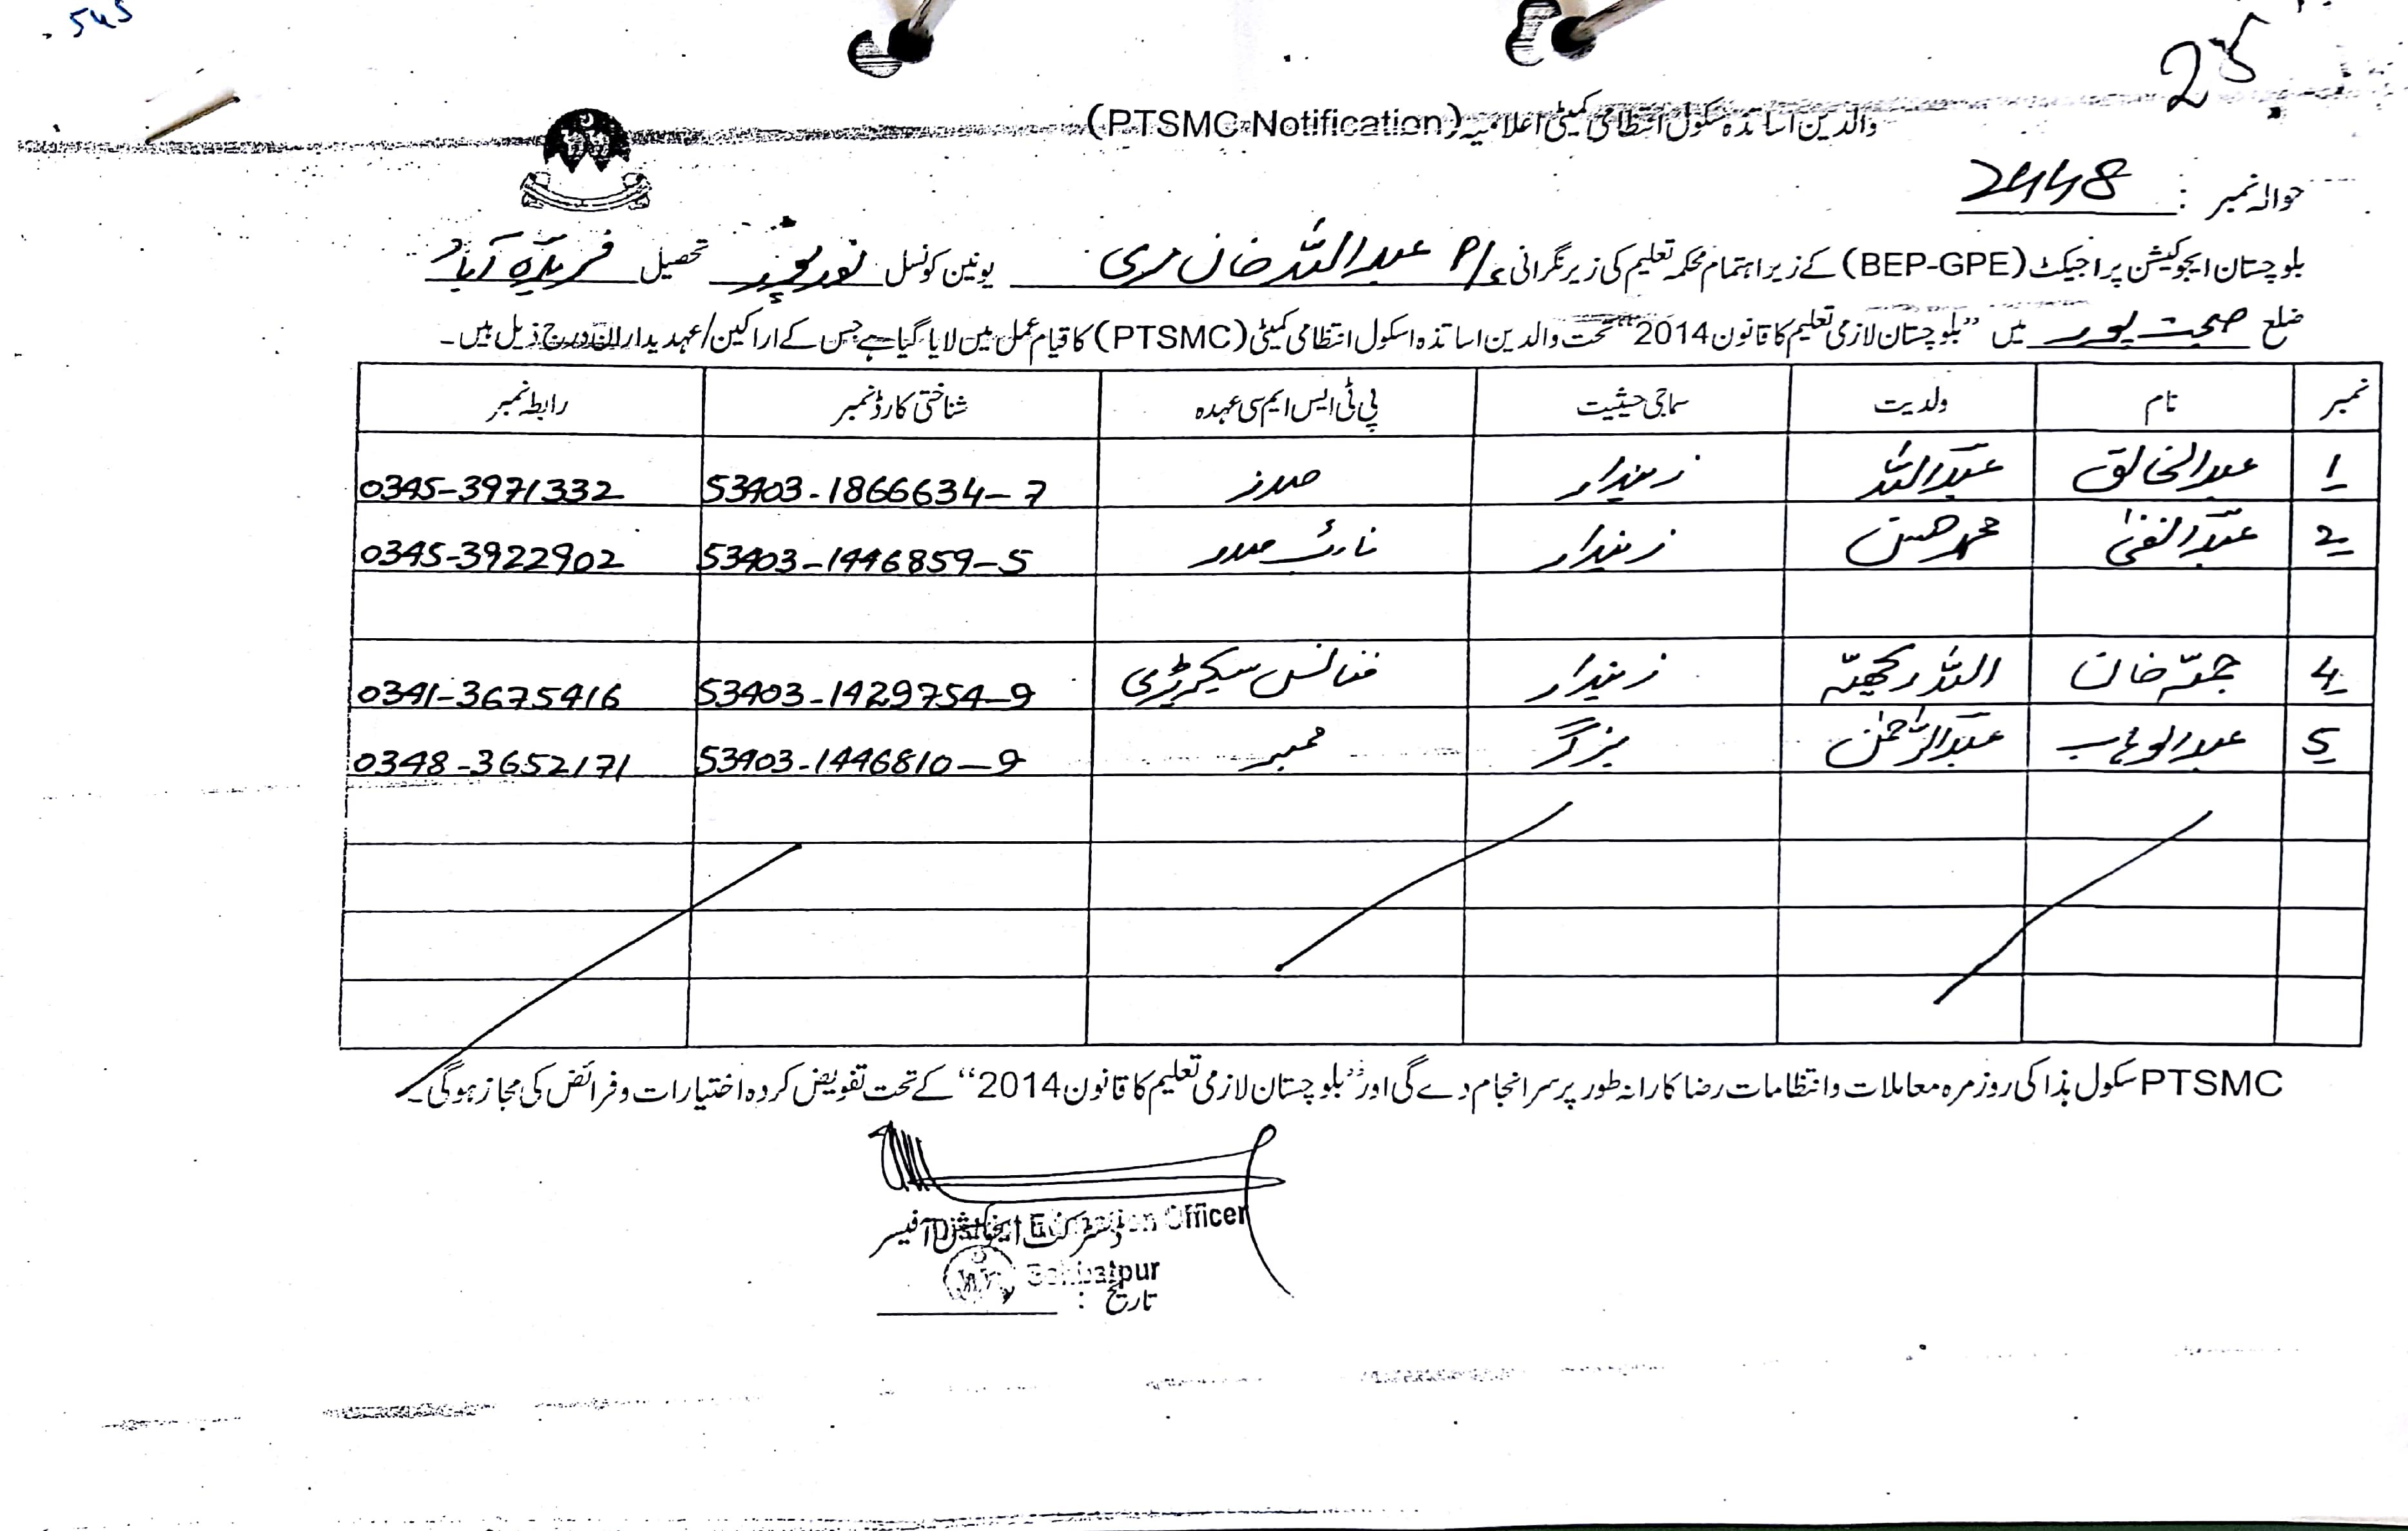 545
25
والدین اساتذہ سکول انتظامی کمیٹی اعلامیہ (PTSMC-Notification)
حوالہ نمبر : 2448
بلوچستان ایجوکیشن پراجیکٹ (BEP-GPE) کے زیر اہتمام محکمہ تعلیم کی زیر نگرانی P/S عبداللہ خان مری یونین کونسل نور پور تحصیل فرید آباد
ضلع صحبت پور میں ”بلوچستان لازمی تعلیم کا قانون 2014“ تحت والدین اساتذہ اسکول انتظامی کمیٹی (PTSMC) کا قیام عمل میں لایا گیا ہے جس کے اراکین/عہدیداران درج ذیل ہیں۔
نمبر نام ولدیت سماجی حیثیت پی ٹی ایس ایم سی عہدہ شناختی کارڈ نمبر رابطہ نمبر
1 عبدالخالق عبداللہ زمیندار صدر 53403-1866634-7 0345-3971332
2 عبدالغنی محمد حسن زمیندار نائب صدر 53403-1446859-5 0345-3922902
4 جمعہ خان اللہ رکھیہ زمیندار فنانس سیکریٹری 53403-1429754-9 0341-3675416
5 عبدالوہاب عبدالرحمٰن بزگر ممبر 53403-1446810-9 0348-3652171
PTSMC سکول ہذا کی روزمرہ معاملات و انتظامات رضا کارانہ طور پر سرانجام دے گی اور ”بلوچستان لازمی تعلیم کا قانون 2014“ کے تحت تفویض کردہ اختیارات و فرائض کی مجاز ہوگی۔
ڈسٹرکٹ ایجوکیشن آفیسر
District Education Officer
Sohbatpur
تاریخ :